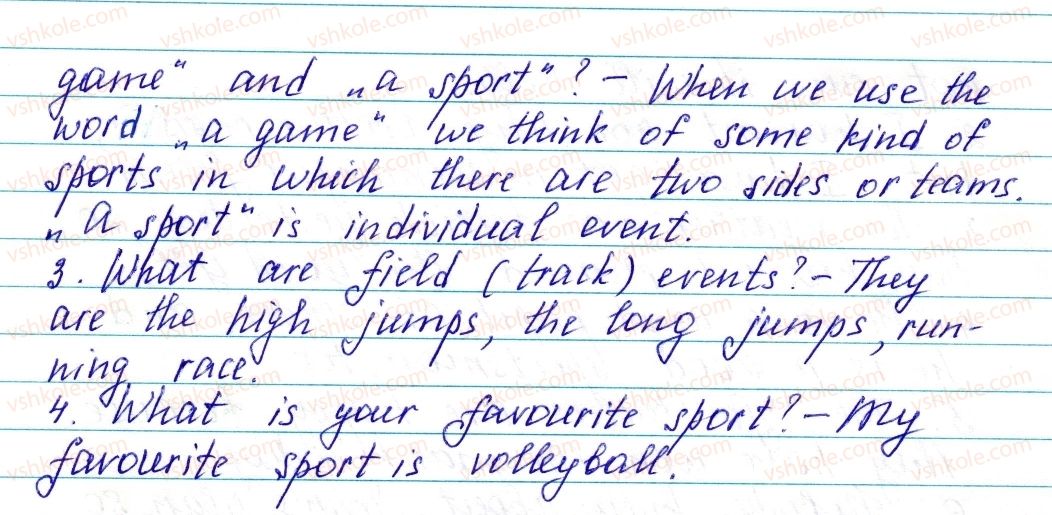 game“ and „a sport“? – When we use the
word „a game“ we think of some kind of
sports in which there are two sides or teams.
„A sport“ is individual event.
3. What are field (track) events? – They
are the high jumps, the long jumps, run-
ning race.
4. What is your favourite sport? – My
favourite sport is volleyball.